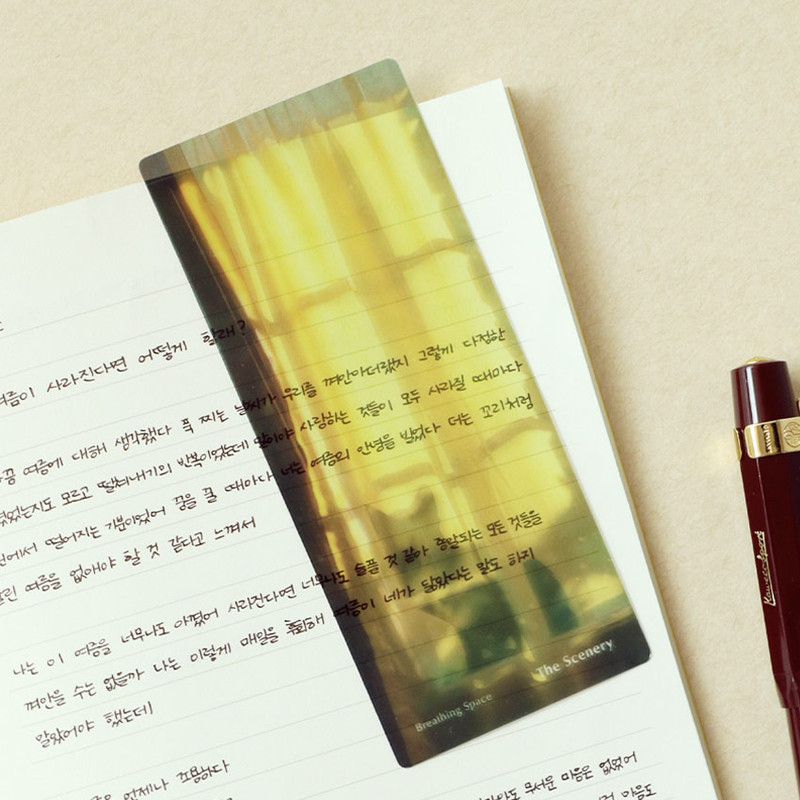 여름이 사라진다면 어떻게 할래?
꿈 여름에 대해 생각했다 푹 찌는 날씨가 우리를 껴안아더랬지 그렇게 다정한
모르고 딸꾹내기의 반복이었는데 말이야 사랑하는 것들이 모두 사라질 때마다
떨어지는 기분이었어 꿈을 꿀 때마다 너는 여름의 안녕을 빌었다 너는 꼬리처럼
여름을 없애야 할 것 같다고 느껴서
나는 이 여름을 너무나도 아꼈어 사라진다면 너무나도 슬플 것 같아 증발되는 모든 것들을
껴안을 수는 없을까 나는 이렇게 매일을 후회해 여름이 네가 닳았다는 말도 하지
말았어야 했는데
언제나 조용하다
무서운 마음은 없었어
마음도
Breathing Space
The Scenery
Kaweco Sport